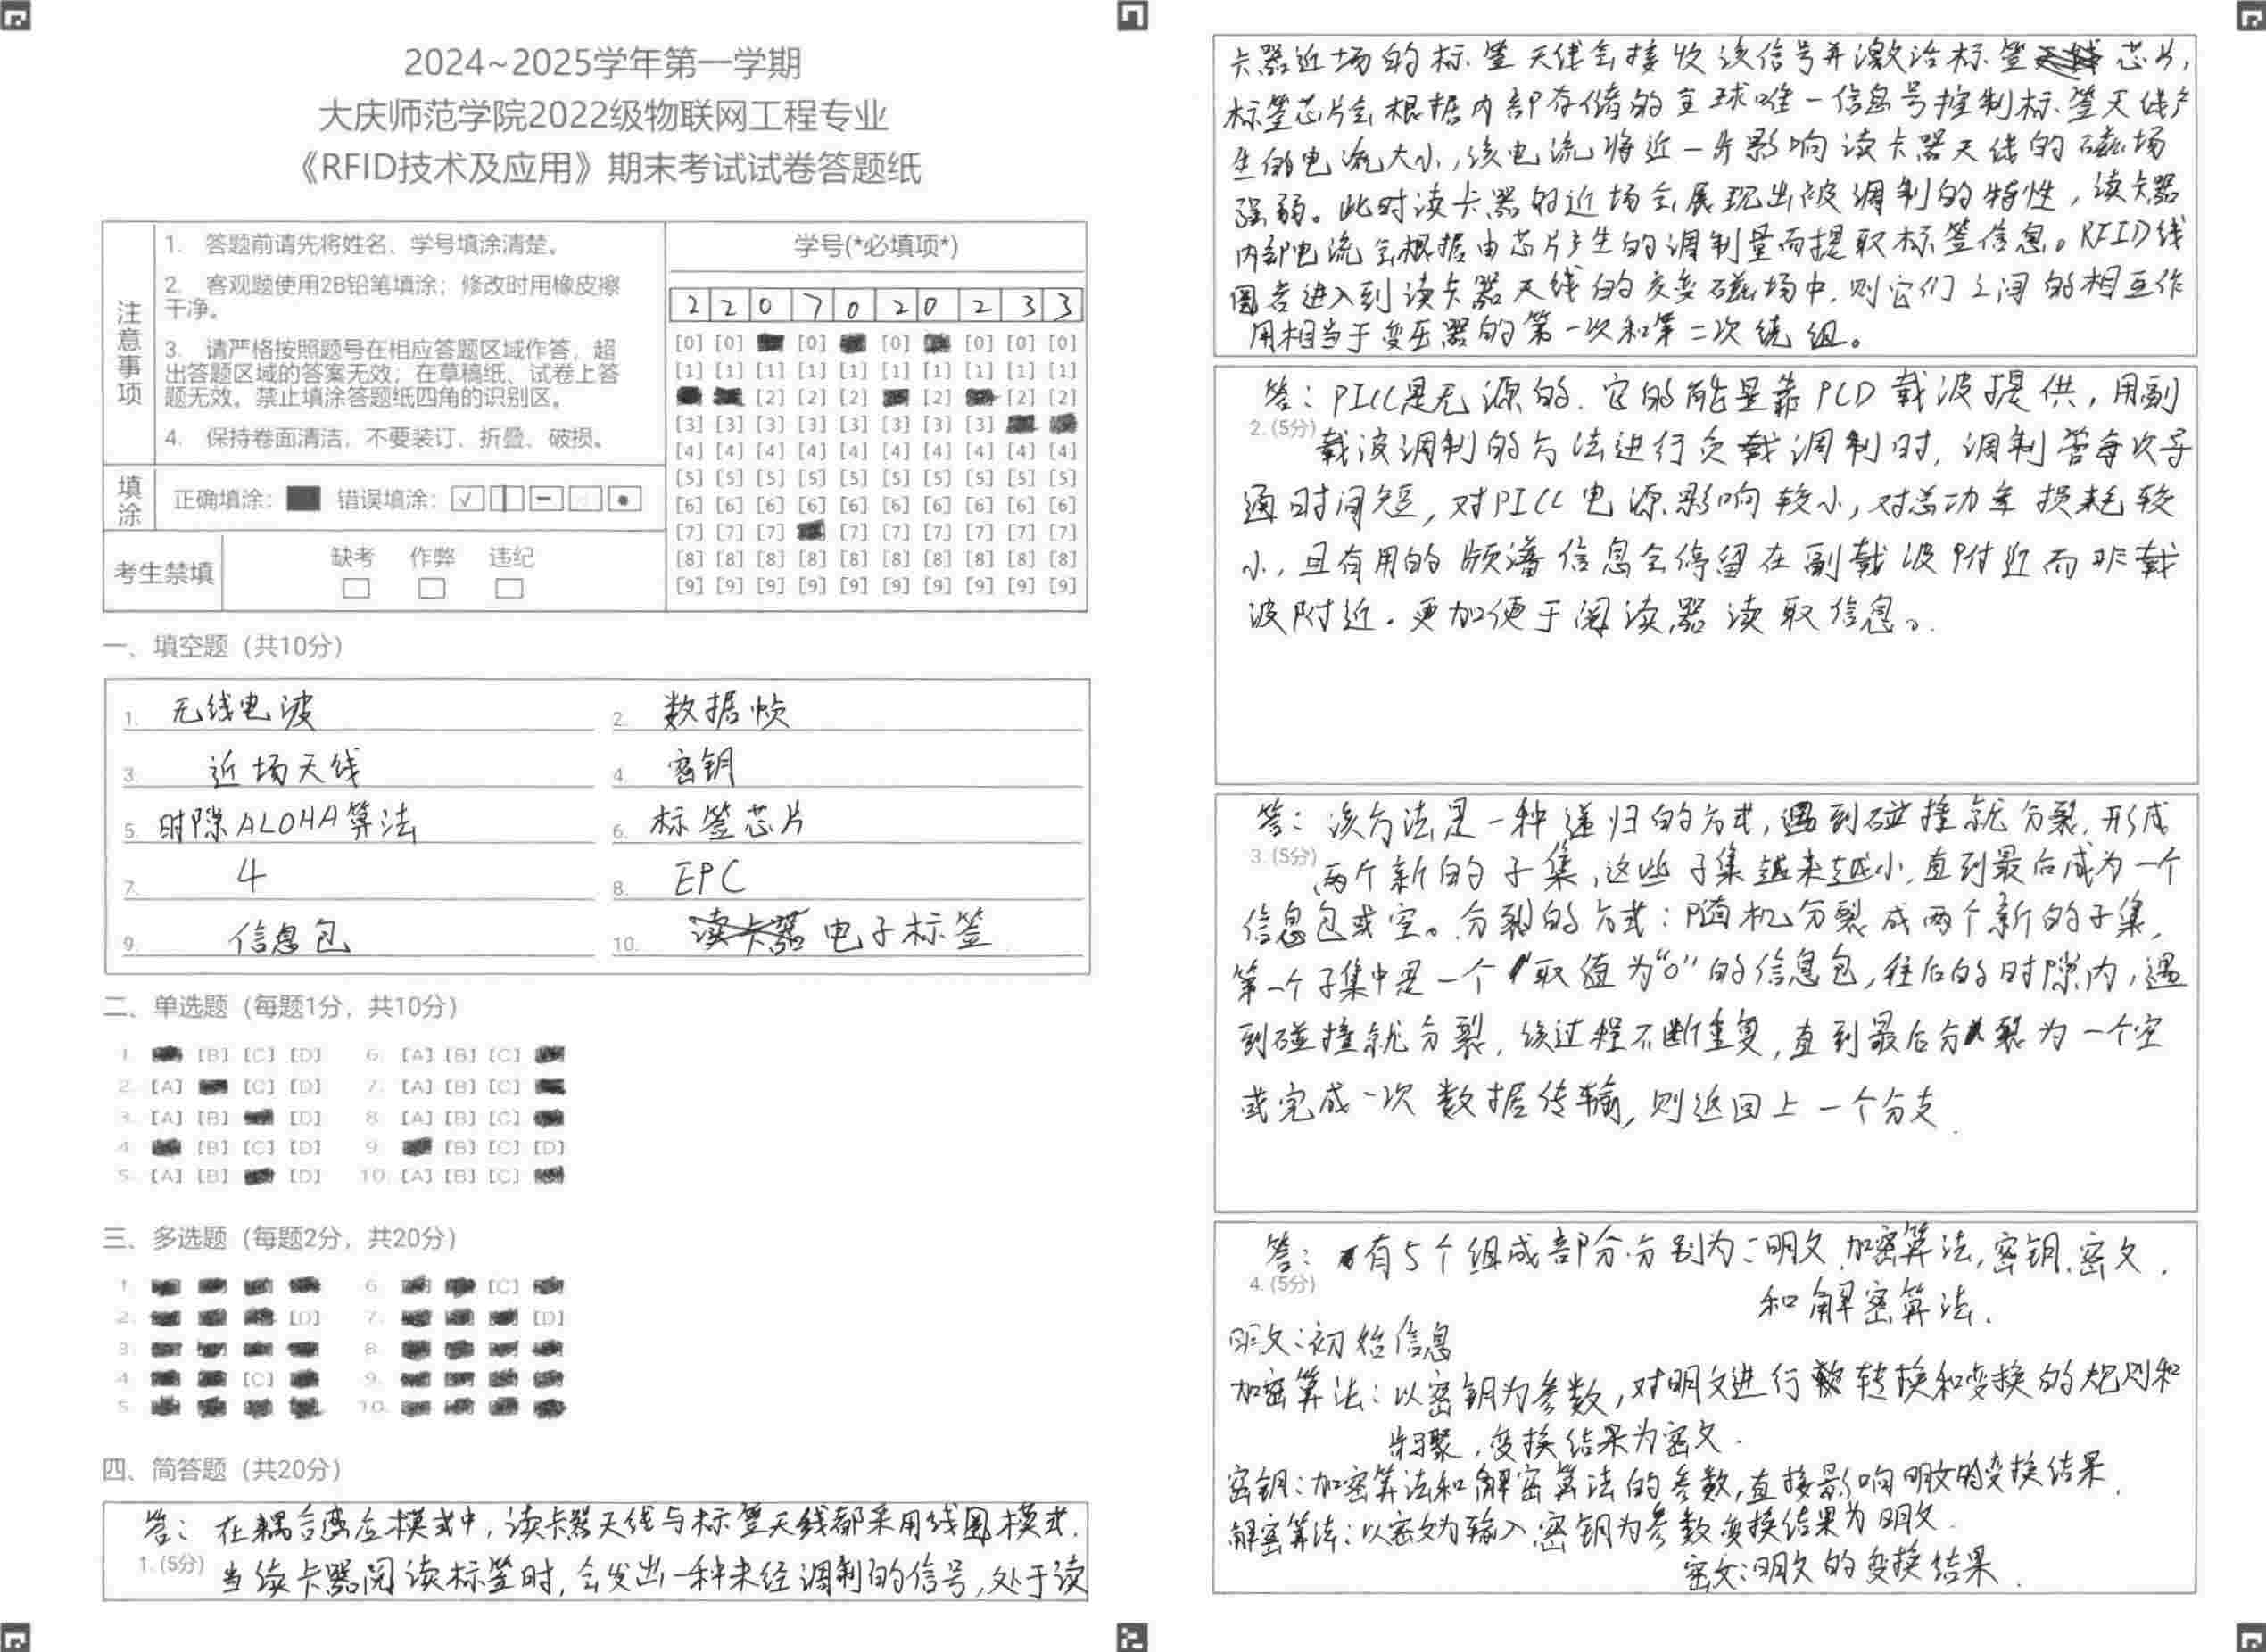 2024~2025学年第一学期
大庆师范学院2022级物联网工程专业
《RFID技术及应用》期末考试试卷答题纸
注意事项
1. 答题前请先将姓名、学号填涂清楚。
2. 客观题使用2B铅笔填涂；修改时用橡皮擦
干净。
3. 请严格按照题号在相应答题区域作答，超
出答题区域的答案无效；在草稿纸、试卷上答
题无效。禁止填涂答题纸四角的识别区。
4. 保持卷面清洁，不要装订、折叠、破损。
填涂 正确填涂： 错误填涂：
考生禁填 缺考 作弊 违纪
学号(*必填项*)
2 2 0 7 0 2 0 2 3 3
[0] [0] [0] [0] [0] [0] [0]
[1] [1] [1] [1] [1] [1] [1] [1] [1] [1]
[2] [2] [2] [2] [2] [2]
[3] [3] [3] [3] [3] [3] [3] [3]
[4] [4] [4] [4] [4] [4] [4] [4] [4] [4]
[5] [5] [5] [5] [5] [5] [5] [5] [5] [5]
[6] [6] [6] [6] [6] [6] [6] [6] [6] [6]
[7] [7] [7] [7] [7] [7] [7] [7] [7]
[8] [8] [8] [8] [8] [8] [8] [8] [8] [8]
[9] [9] [9] [9] [9] [9] [9] [9] [9] [9]
一、填空题（共10分）
1. 无线电波 2. 数据帧
3. 近场天线 4. 密钥
5. 时隙ALOHA算法 6. 标签芯片
7. 4 8. EPC
9. 信息包 10. 电子标签
二、单选题（每题1分，共10分）
1. [B] [C] [D] 6. [A] [B] [C]
2. [A] [C] [D] 7. [A] [B] [C]
3. [A] [B] [D] 8. [A] [B] [C]
4. [B] [C] [D] 9. [B] [C] [D]
5. [A] [B] [D] 10. [A] [B] [C]
三、多选题（每题2分，共20分）
1. 6. [C]
2. [D] 7. [D]
3. 8.
4. [C] 9.
5. 10.
四、简答题（共20分）
答：在耦合感应模式中，读卡器天线与标签天线都采用线圈模式.
1.(5分) 当读卡器阅读标签时，会发出一种未经调制的信号，处于读
卡器近场的标签天线会接收该信号并激活标签芯片，
标签芯片会根据内部存储的全球唯一信息号控制标签天线产
生的电流大小，该电流将近一步影响读卡器天线的磁场
强弱。此时读卡器的近场会展现出被调制的特性，读卡器
内部电流会根据由芯片产生的调制量而提取标签信息。RFID线
圈若进入到读卡器天线的交变磁场中.则它们之间的相互作
用相当于变压器的第一次和第二次绕组。
答：PICC是无源的.它的能量靠PCD载波提供，用副
2.(5分) 载波调制的方法进行负载调制时，调制管每次导
通时间短，对PICC电源影响较小，对总功率损耗较
小，且有用的频谱信息会停留在副载波附近而非载
波附近.更加便于阅读器读取信息。
答：该方法是一种递归的方式，遇到碰撞就分裂，形成
3.(5分) 两个新的子集，这些子集越来越小，直到最后成为一个
信息包或空。分裂的方式：随机分裂成两个新的子集，
第一个子集中是一个取值为“0”的信息包，往后的时隙内，遇
到碰撞就分裂，该过程不断重复，直到最后分裂为一个空
或完成一次数据传输，则返回上一个分支.
答：有5个组成部分.分别为：明文.加密算法，密钥.密文.
4.(5分) 和解密算法.
明文：初始信息
加密算法：以密钥为参数，对明文进行转换和变换的规则和
步骤，变换结果为密文.
密钥：加密算法和解密算法的参数，直接影响明文的变换结果.
解密算法：以密文为输入密钥为参数变换结果为明文.
密文：明文的变换结果.